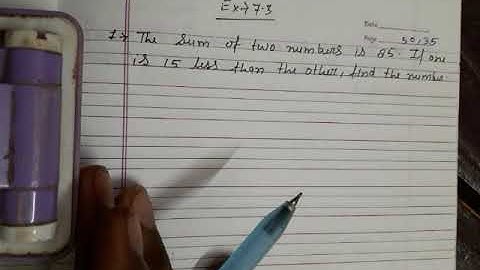 Ex→7.3
Date
Page 50135
1→ The sum of two numbers is 85. If one
is 15 less than the other, find the number